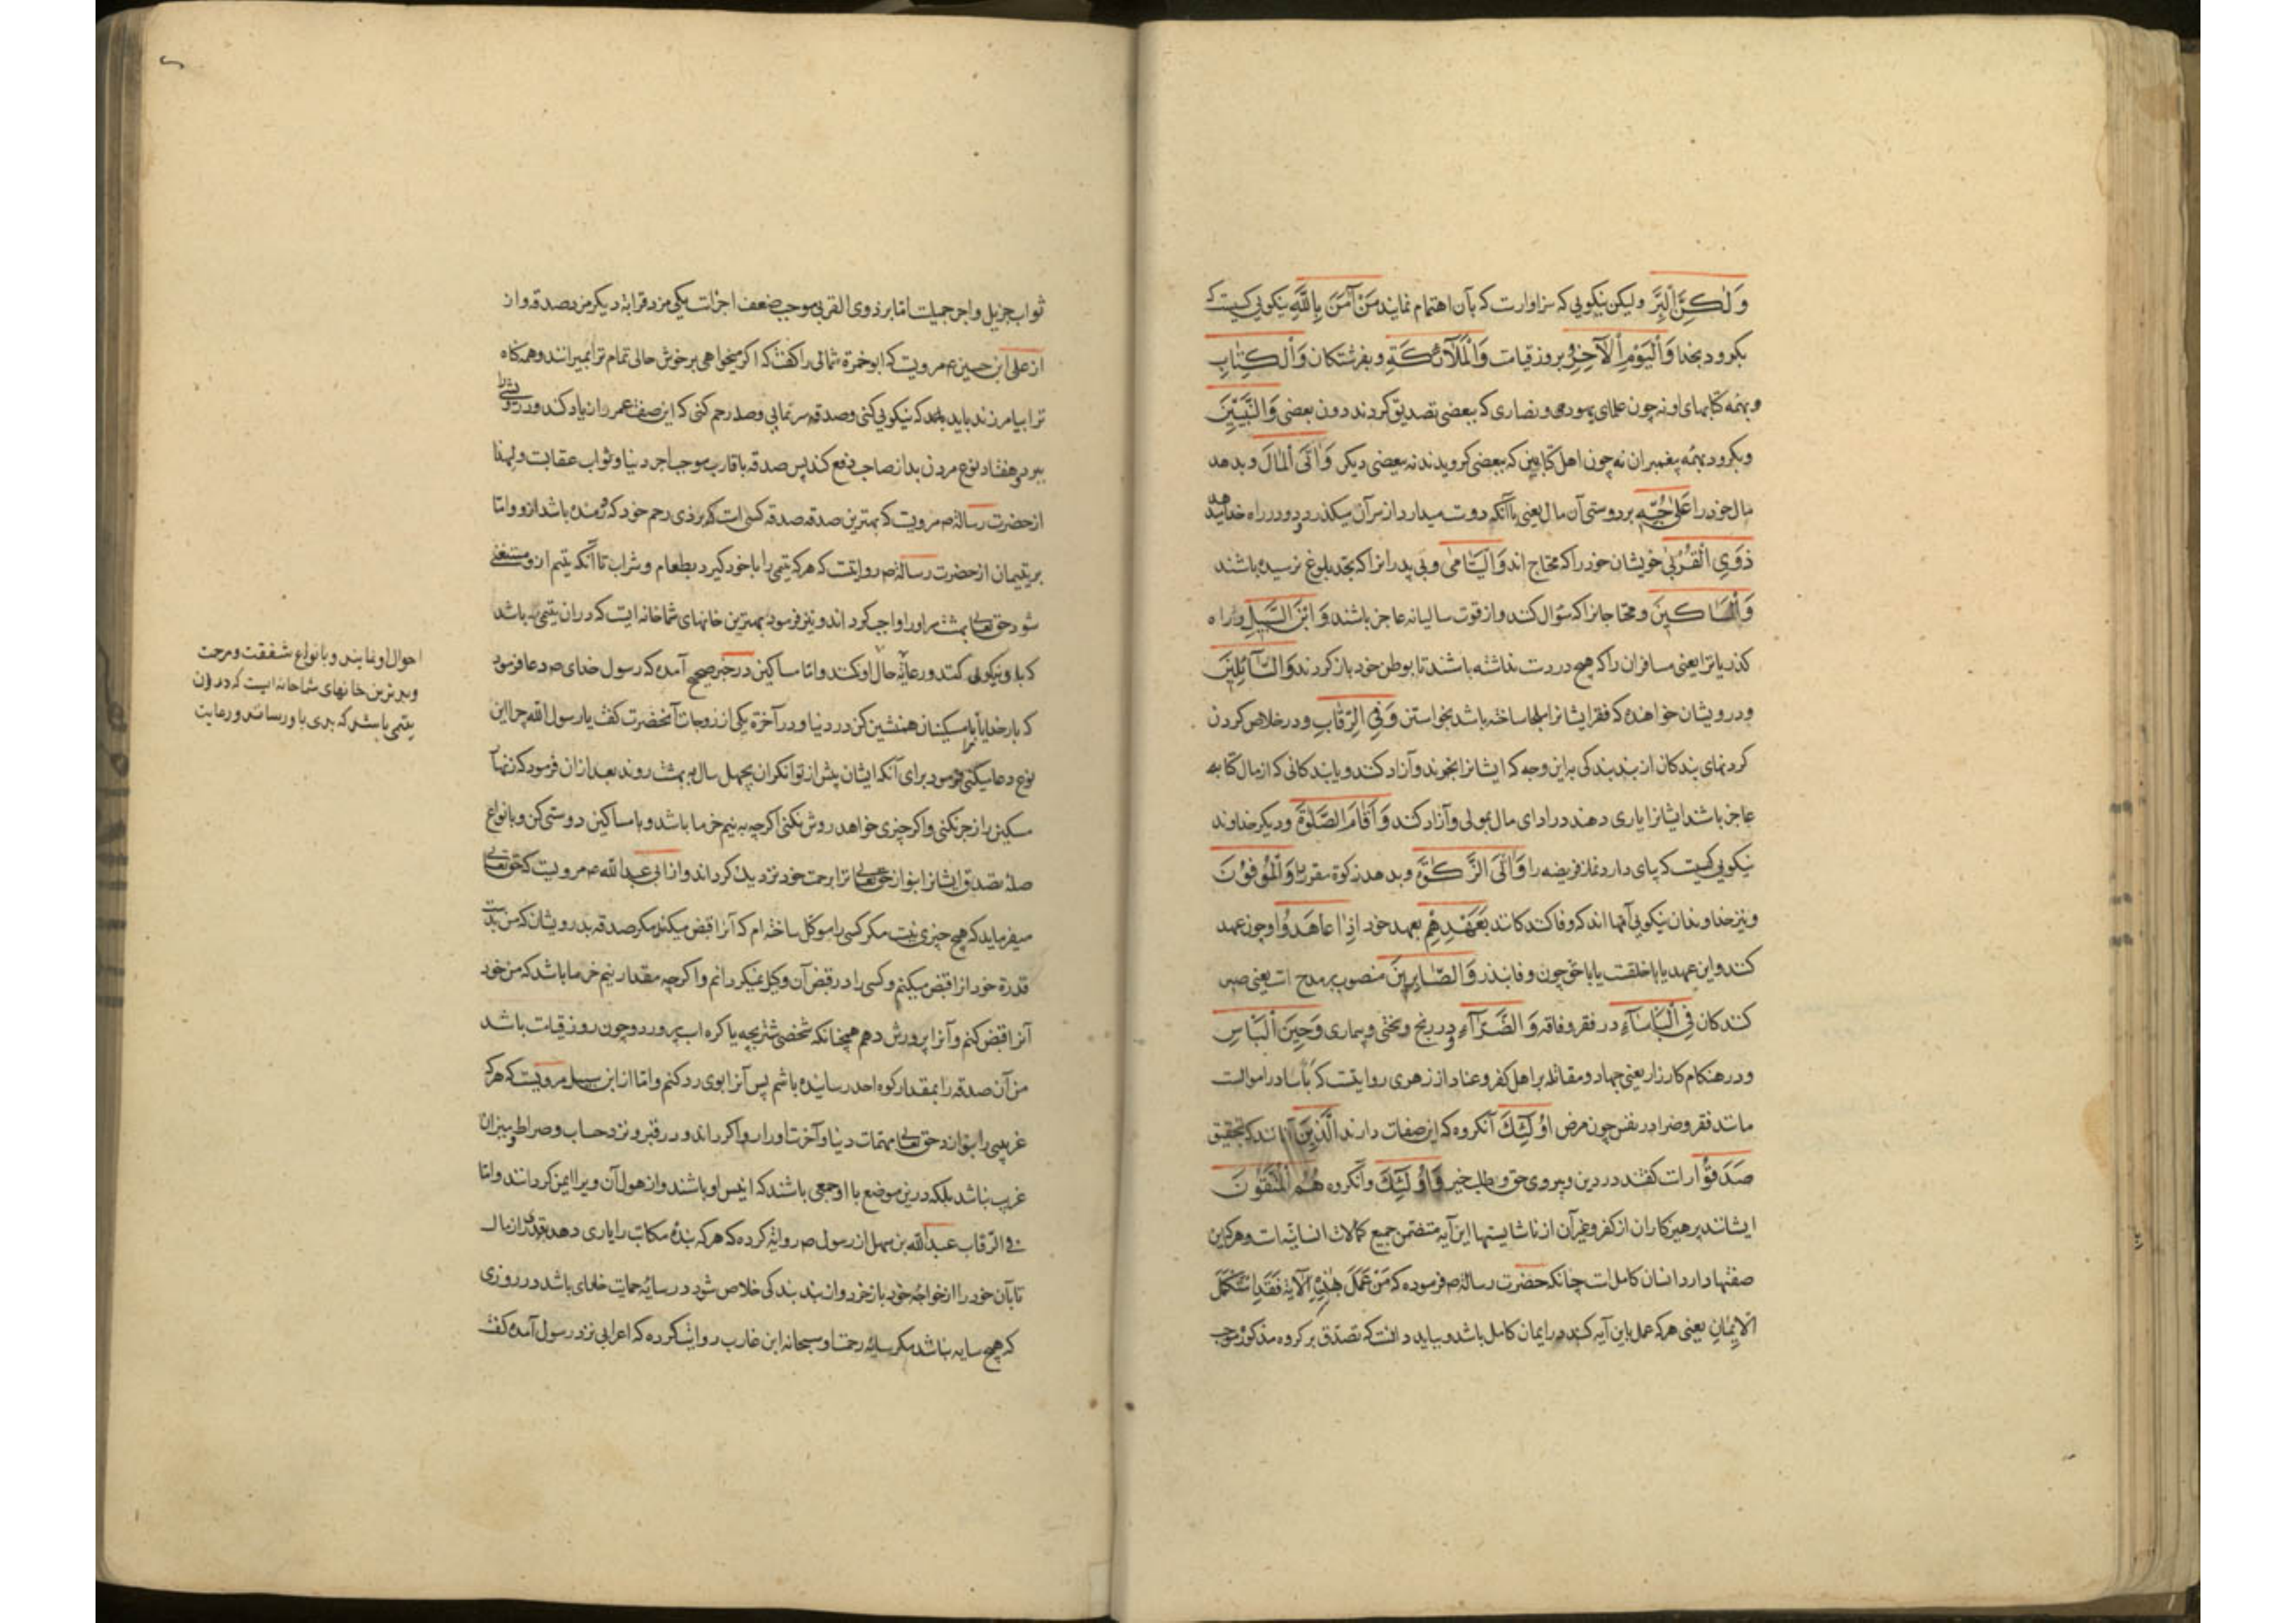 وَلٰكِنَّ الْبِرَّ ولیکن نیکویی که سزاوارست که بآن اهتمام نمایند مَنْ آمَنَ بِاللّٰهِ نیکویی کسیست که
بکرود بخدا وَالْیَوْمِ الْآخِرِ و بروز قیامت وَالْمَلَآئِکَةِ و بفرشتکان وَالْکِتٰابِ
و بهمه کتابهای او نه چون علمای یهود و نصاری که ببعضی تصدیق کردند دون بعضی وَالنَّبِیِّینَ
و بکرود بهمه پیغمبران نه چون اهل کتابین که ببعضی کرویدند نه ببعضی دیکر وَآتَی الْمٰالَ و بدهد
مال خود را عَلیٰ حُبِّهِ بر دوستی آن مال یعنی باآنکه دوست میدارد از سر آن میکذرد و در راه خدا میدهد
ذَوِی الْقُرْبیٰ خویشان خود را که محتاج اند وَالْیَتٰامیٰ و بی پدرانرا که بحد بلوغ نرسیده باشند
وَالْمَسٰاکِینَ و محتاجانرا که سؤال کنند و از قوت سالیانه عاجز باشند وَابْنَ السَّبِیلِ و راه
کذریانرا یعنی مسافران را که هیچ در دست نداشته باشند تا بوطن خود باز کردند وَالسَّآئِلِینَ
و درویشان خواهنده که فقر ایشانرا ملجا ساخته باشد بخواستن وَفِی الرِّقٰابِ و در خلاص کردن
کردنهای بندکان از بند بندکی براین وجه که ایشانرا بخرند و آزاد کنند و یا بندکانی که از مال کتابه
عاجز باشند ایشانرا یاری دهند در ادای مال بمولی و آزاد کنند وَأَقٰامَ الصَّلٰوةَ و دیکر خداوند
نیکویی کسیست که پای دارد نماز فریضه را وَآتَی الزَّکٰوةَ و بدهد زکوة مقرر را وَالْمُوفُونَ
و نیز خداوندان نیکویی آنها اند که وفا کنندکانند بِعَهْدِهِمْ بعهد خود إِذٰا عٰاهَدُوا چون عهد
کنند و این عهد یا باخلقست یا باحق چون وفا بنذر وَالصّٰابِرِینَ منصوب بر مدح است یعنی صبر
کنندکان فِی الْبَأْسٰآءِ در فقر و فاقه وَالضَّرّٰآءِ و در رنج و سختی و بیماری وَحِینَ الْبَأْسِ
و در هنکام کارزار یعنی جهاد و مقاتله بر اهل کفر و عناد از زهری روایتست که بأسا در اموالست
مانند فقر و ضرا در نفس چون مرض أُولٰئِکَ آنکروه که این صفات دارند الَّذِینَ آنانند که بتحقیق
صَدَقُوا راست کفتند در دین و پیروی حق و طلب خیر وَأُولٰئِکَ و آنکروه هُمُ الْمُتَّقُونَ
ایشانند پرهیزکاران از کفر و غیر آن از ناشایستها این آیه متضمن جمیع کمالات انسانیه است و هر که این
صفتها دارد انسان کامل است چنانکه حضرت رسالة ص فرموده که مَنْ عَمِلَ هٰذِهِ الْآیَة فَقَدِ اسْتَکْمَلَ
الْإِیمٰانَ یعنی هر که عمل باین آیه کند در ایمان کامل باشد و بباید دانست که تصدق بر کروه مذکور موجب
ثواب جزیل و اجر جمیلست اما بر ذوی القربی موجب ضعف اجرست یکی مزد قرابة دیکر مزد صدقه و از
از علی ابن حسین ع مرویست که ابو حمزة ثمالی را کفت که اکر میخواهی بر خوش حالی تمام ترا بمیرانند و همه کناه
ترا بیامرزند باید که نیکویی کنی و صدقه سر نمایی و صله رحم کنی که این صفت عمر را زیاد کند و درویشی را
ببرد و هفتاد نوع مردن بد از صاحب دفع کند پس صدقه باقارب موجب اجر دنیا و ثواب عقباست و لهذا
از حضرت رسالة ص مرویست که بهترین صدقه صدقه کسی است که بر ذی رحم خود که باشد از و و اما
بر یتیمان از حضرت رسالة ص روایتست که هر که یتیمی را با خود کیرد بطعام و شراب تا آنکه یتیم از و مستغنی
شود حق تعالی بهشت بر او را واجب کرداند و نیز فرمود بهترین خانهای شما خانه ایست که در ان یتیمی باشد
که با و نیکویی کنند و رعایة حال او کنند و اما مساکین در خبر صحیح آمده که رسول خدای ص دعا فرمود
که بار خدایا مرا با مسکینان همنشین کن در دنیا و در آخرة یکی از زوجات آنحضرت کفت یا رسول الله چرا این
نوع دعا میکنی فرمود برای آنکه ایشان پیش از توانکران بچهل سال به بهشت روند بعد از ان فرمود که زنهار
مسکین را زجر نکنی و اکر چیزی خواهد ردش نکنی اکرچه به نیم خرما باشد و با مساکین دوستی کن و بانواع
صله تصدق ایشانرا بنواز حق تعالی ترا برحمت خود نزدیک کرداند و از ابی عبد الله ع مرویست که حق تعالی
میفرماید که هیچ چیزی نیست مکر کسی را موکل ساخته ام که آنرا قبض میکند مکر صدقه بدرویشان که من بدست
قدرة خود انرا قبض میکنم و کسی را در قبض آن وکیل نمیکردانم و اکرچه مقدار نیم خرما باشد که من خود
آنرا قبض کنم و آنرا پرورش دهم همچنانکه شخصی شتربچه یا کره اسب پرورد و چون روز قیامت باشد
من آن صدقه را بمقدار کوه احد رسانیده باشم پس آنرا بوی رد کنم و اما از ابن سبیل مرویست که هر که
غریبی را بنوازد حق تعالی مهمات دنیا و آخرت او را روا کرداند و در قبر و نزد حساب و صراط و میزان
غریب نباشد بلکه در ین موضع با او جمعی باشند که انیس او باشند و از هول آن ویرا ایمن کردانند و اما
فی الرقاب عبد الله بن سهل از رسول ص روایة کرده که هر که بندهٔ مکاتب را یاری دهد بقدری از مال
تا بآن خود را از خواجهٔ خود باز خرد و از بند بندکی خلاص شود در سایهٔ حمایت خدای باشد در روزی
که هیچ سایه نباشد مکر سایهٔ رحمت او سبحانه ابن عازب روایت کرده که اعرابی نزد رسول آمده کفت
احوال او نمایند و بانواع شفقت و مرحمت
و بدترین خانهای شما خانه ایست که در آن
یتیمی باشد که بدی باو رسانند و رعایت